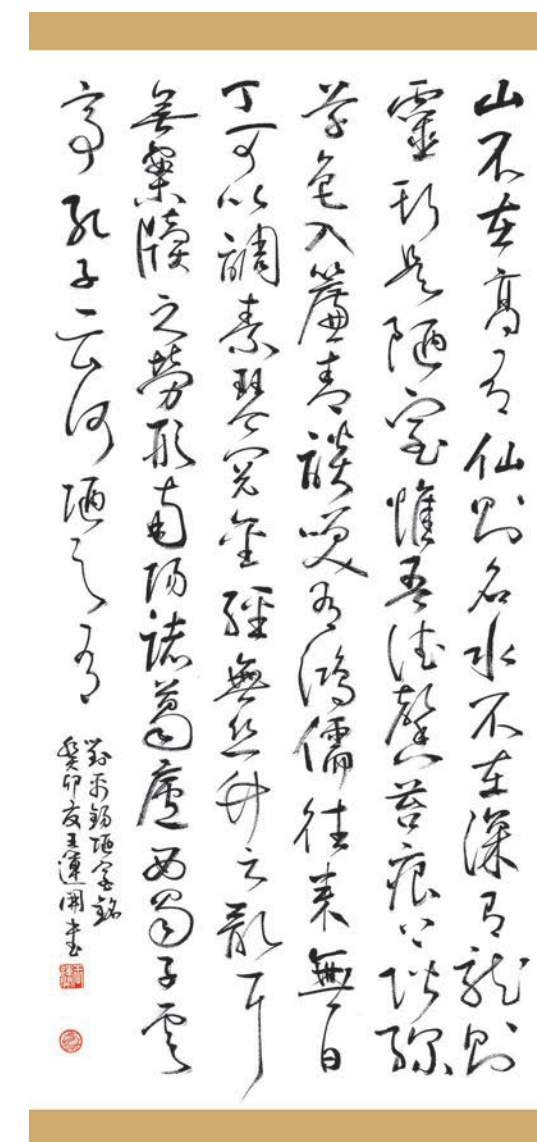 山不在高有仙則名水不在深有龍則
靈斯是陋室惟吾德馨苔痕上階綠
草色入簾青談笑有鴻儒往來無白
丁可以調素琴閱金經無絲竹之亂耳
無案牘之勞形南陽諸葛廬西蜀子雲
亭孔子云何陋之有
劉禹錫陋室銘
癸卯夏王運開書